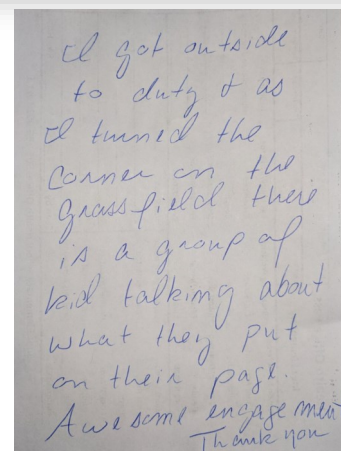 I got outside
to duty & as
I turned the
corner on the
grassfield there
is a group of
kid talking about
what they put
on their page.
Awesome engagement
Thank you